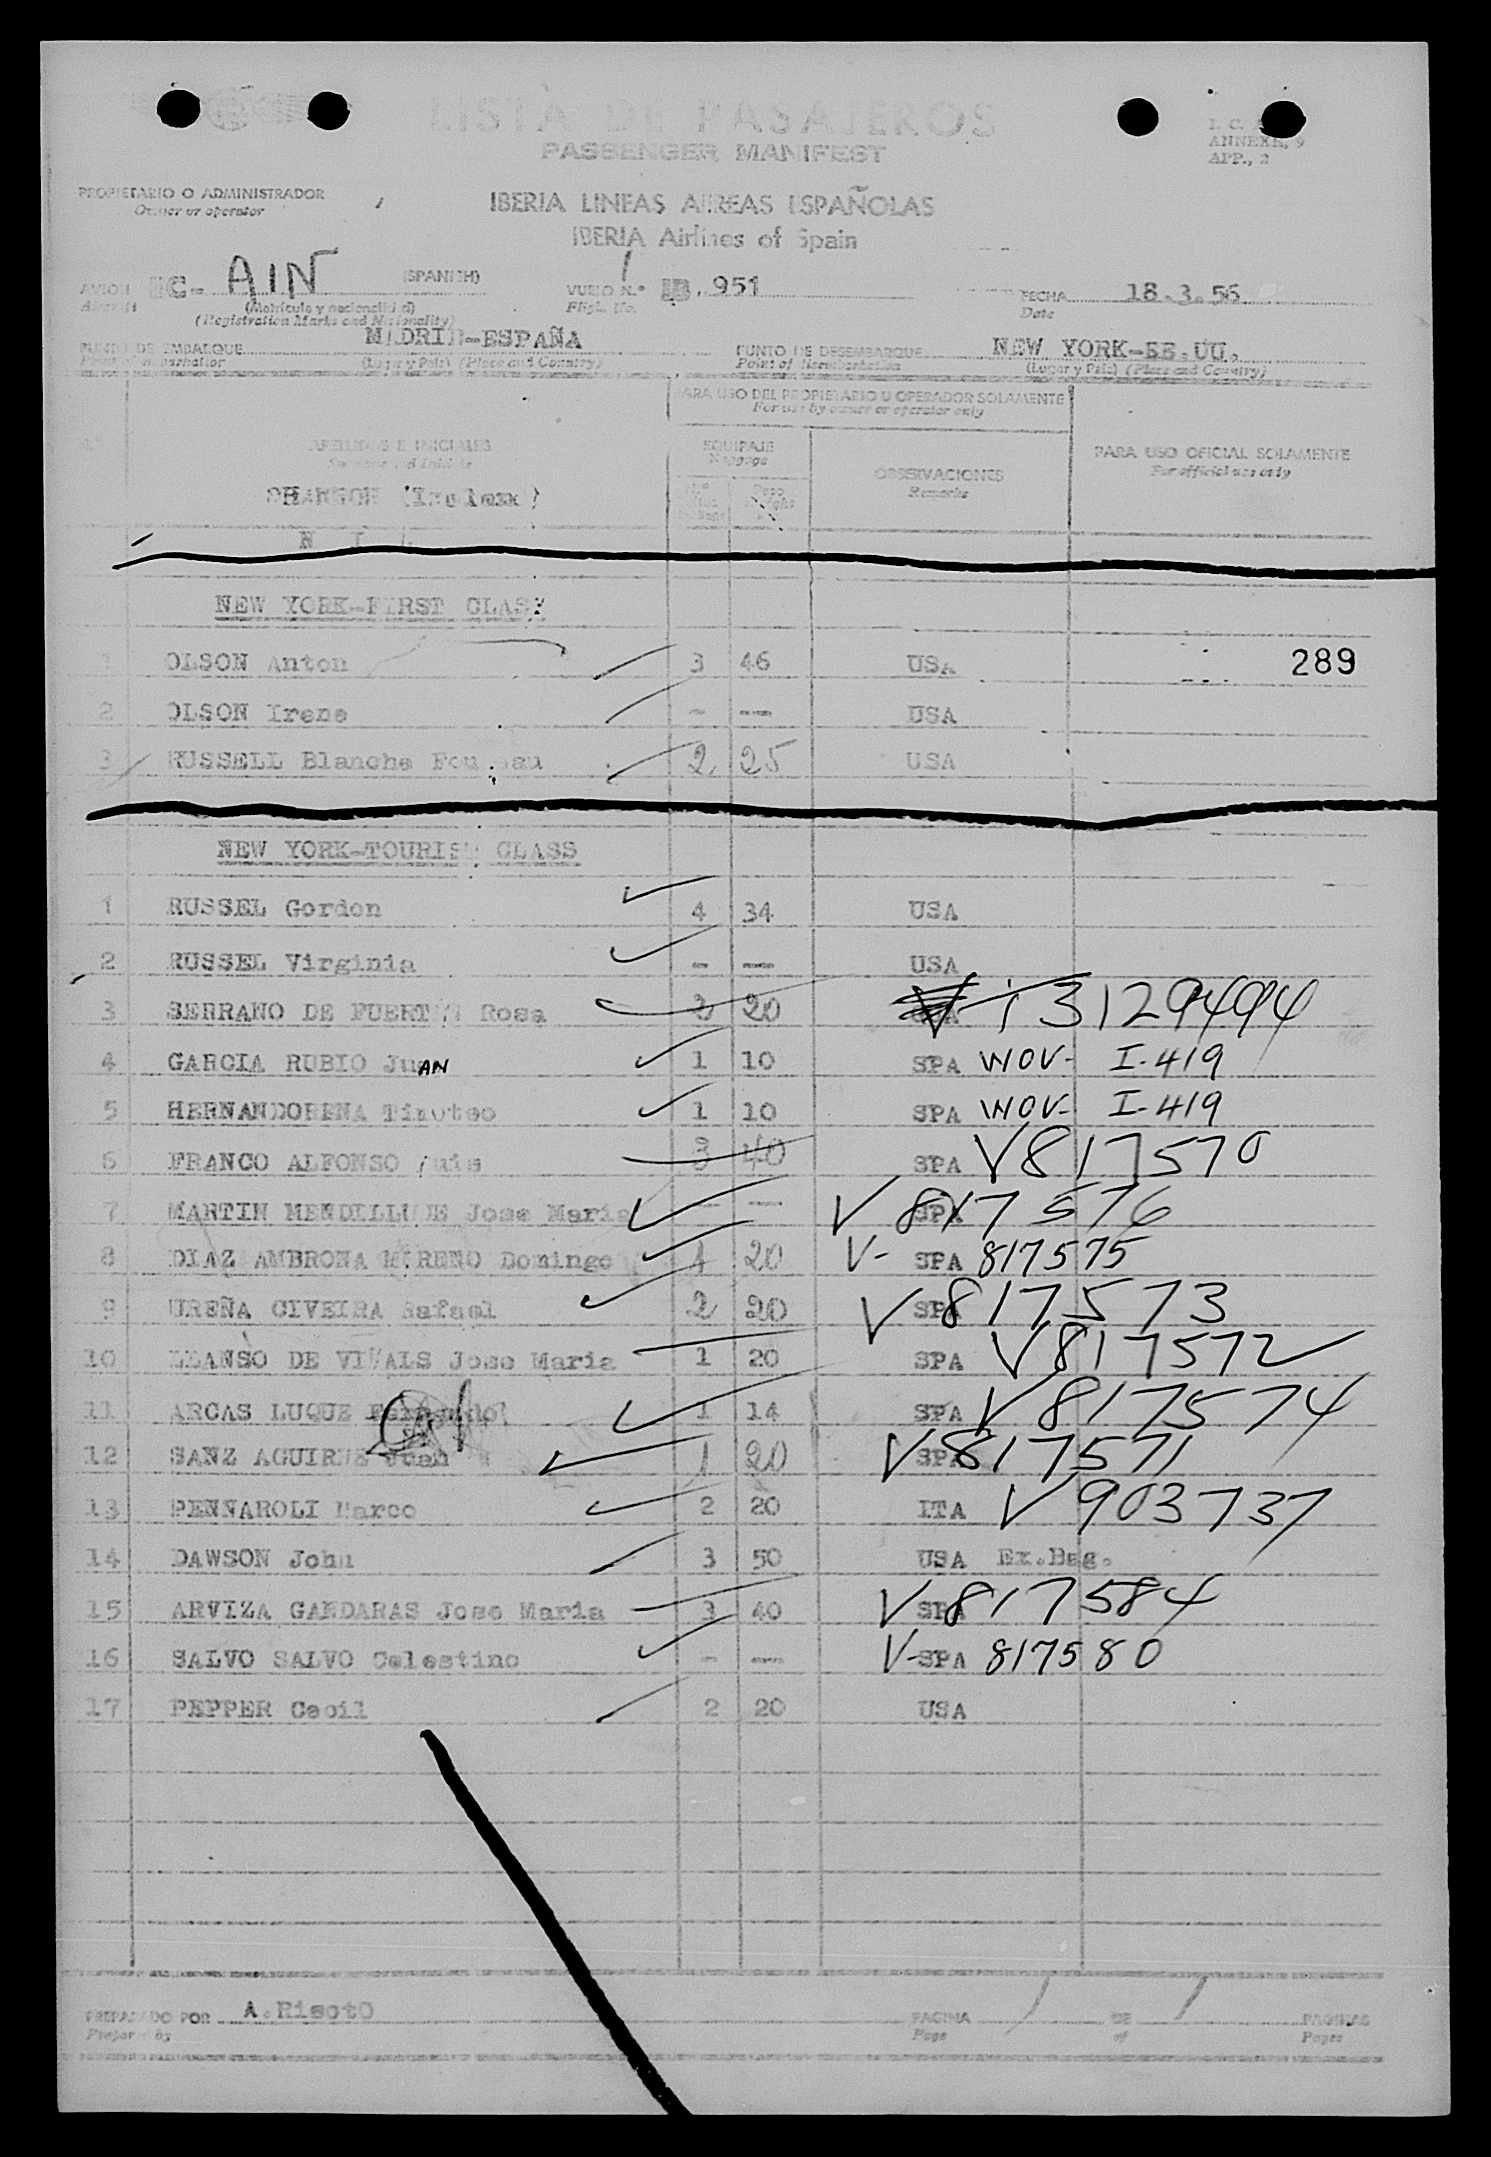 LISTA DE PASAJEROS
PASSENGER MANIFEST
I. C. A.
ANNEXE, 9
APP., 2
PROPIETARIO O ADMINISTRADOR
Owner or operator
IBERIA LINEAS AEREAS ESPAÑOLAS
IBERIA Airlines of Spain
AVION EC- AIN (SPANISH) VUELO N.º IB. 951 FECHA 18.3.56
Aircraft (Matrícula y nacionalidad) Flight No. Date
(Registration Marks and Nationality)
PUNTO DE EMBARQUE MADRID-ESPAÑA PUNTO DE DESEMBARQUE NEW YORK-EE.UU.
Point of embarkation (Lugar y País) (Place and Country) Point of disembarkation (Lugar y País) (Place and Country)
PARA USO DEL PROPIETARIO U OPERADOR SOLAMENTE
For use by owner or operator only
APELLIDOS E INICIALES EQUIPAJE OBSERVACIONES PARA USO OFICIAL SOLAMENTE
Surname and Initials Baggage Remarks For official use only
SHANNON (Irelan)
N I L
NEW YORK-FIRST CLASS
1 OLSON Anton 3 46 USA 289
2 OLSON Irene - --- USA
3 RUSSELL Blanche 2 25 USA
NEW YORK-TOURIST CLASS
1 RUSSEL Gordon 4 34 USA
2 RUSSEL Virginia - --- USA
3 SERRANO DE FUERTES Rosa 2 20 I 3129494
4 GARCIA RUBIO JuAN 1 10 SPA WOV- I-419
5 HERNANDORENA Timoteo 1 10 SPA WOV- I-419
6 FRANCO ALFONSO Luis 3 40 SPA V817570
7 MARTIN Jose Maria - --- SPA V 817576
8 DIAZ AMBRONA MORENO Domingo 1 20 V- SPA 817575
9 UREÑA CIVEIRA Rafael 2 20 SPA V 817573
10 LLANSO DE VIÑALS Jose Maria 1 20 SPA V817572
11 ARCAS LUQUE Fernando 1 14 SPA V 817574
12 SANZ AGUIRRE Juan 1 20 SPA V817571
13 PENNAROLI Marco 2 20 ITA V 903737
14 DAWSON John 3 50 USA Ex.Bag.
15 ARVIZA GANDARAS Jose Maria 3 40 SPA V 817584
16 SALVO SALVO Celestino - --- V-SPA 817580
17 PEPPER Cecil 2 20 USA
PREPARADO POR A.Risoto PAGINA 1 DE 1 PAGINAS
Prepared by Page of Pages